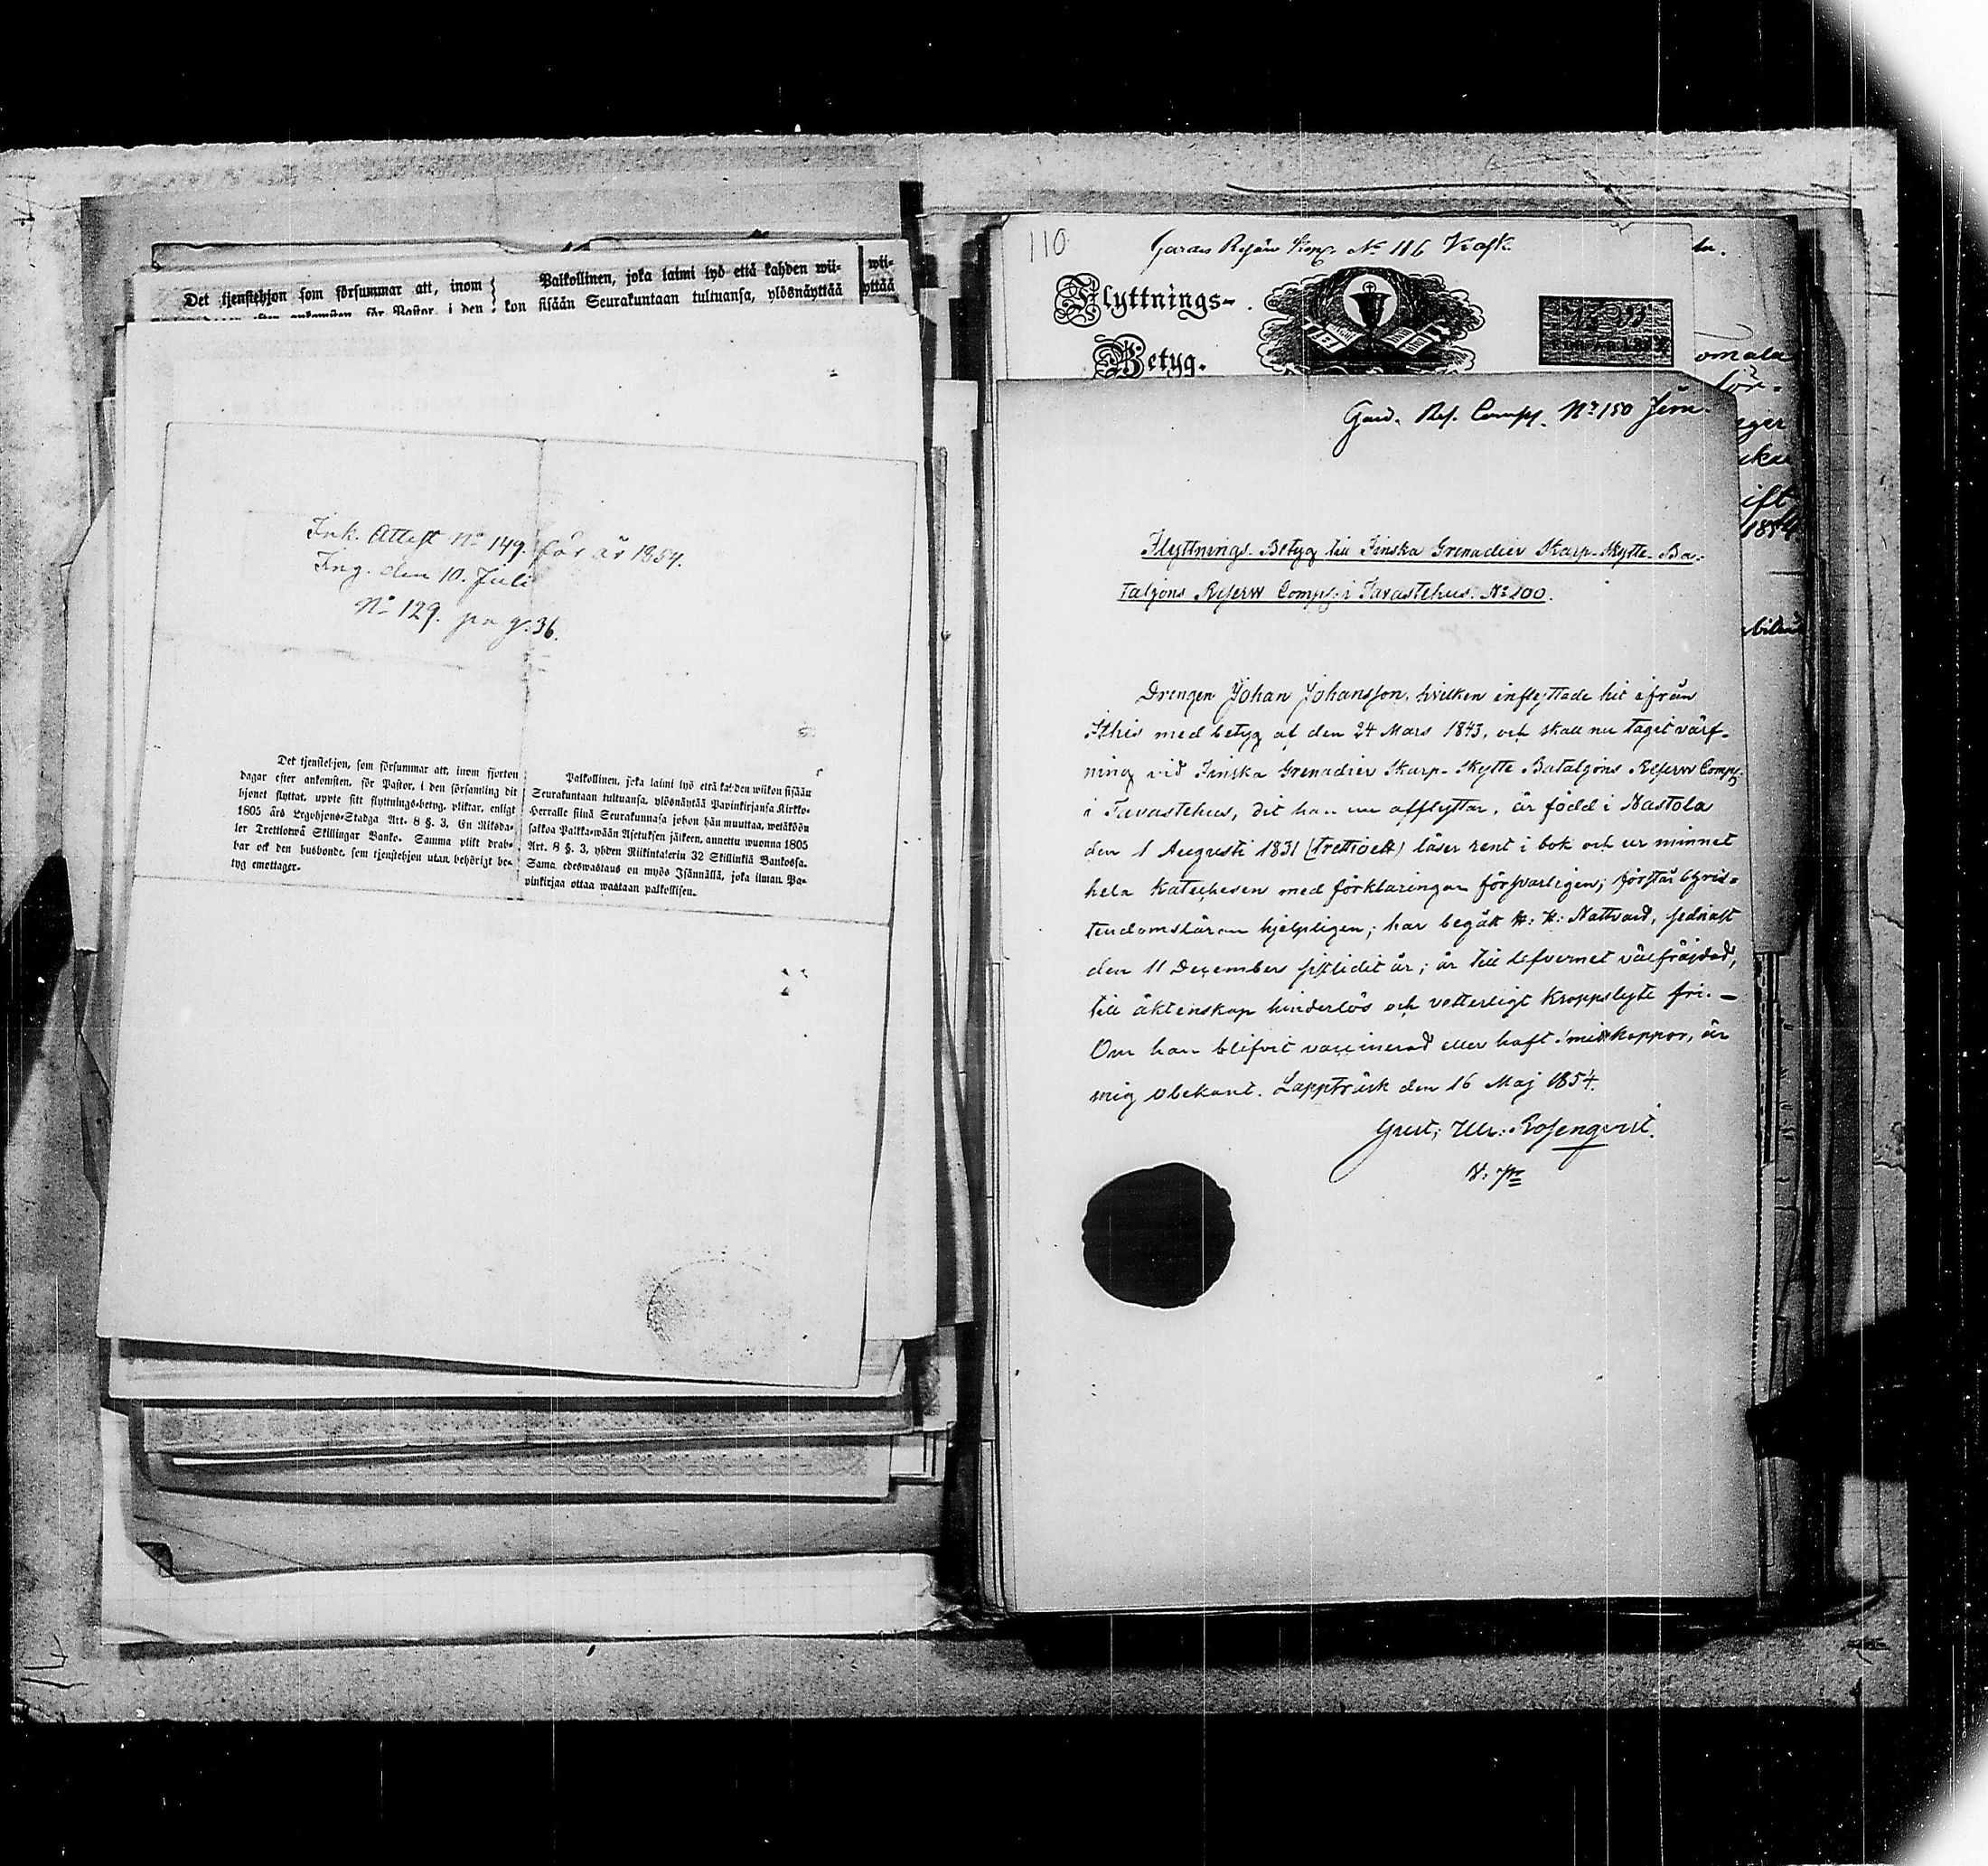 Det tjenstehjon som försummar att, inom
Palkollinen, joka laimi lyö että kahden wii-
kon sisään Seurakuntaan tultuansa, ylösnäyttää
wii-
yttää
Ink. Attest No 149. för år 1854.
Ing. den 10. Juli
No 129. pag: 36.
Det tjenstehjon, som försummar att, inom fjorton
dagar efter ankomsten, för Pastor, i den församling dit
hjonet flyttat, uppte sitt flyttnings-betyg, pliktar, enligt
1805 års Legohjons-Stadga Art. 8 §. 3. En Riksda-
ler Trettiotwå Skillingar Banko. Samma plikt drab-
bar ock den husbonde, som tjenstehjon utan behörigt be-
tyg emottager.
Palkollinen, joka laimi lyö että kahden wiikon sisään
Seurakuntaan tultuansa, ylösnäytää Papinkirjansa Kirkko-
Herralle siinä Seurakunnasa johon hän muuttaa, wetäköön
sakkoa Palkka-wään Asetuksen jälkeen, annettu wuonna 1805
Art. 8 §. 3, yhden Riikintalerin 32 Skillinkiä Bankossa.
Sama edeswastaus on myös Isännällä, joka ilman Pa-
pinkirjaa ottaa wastaan palkollisen.
110
No 116
Flyttnings-
Betyg.
omala
för-
ift
1854
Gard. Res. Comp. No 150 Jern.
Flyttnings-Betyg till Finska Grenadier Skarp-Skytte-Ba-
taljons Reserv Comp: i Tavastehus. No 200.
Drengen Johan Johansson, hvilken inflyttade hit ifrån
Ithis med betyg af den 24 Mars 1843, och skall nu taget värf-
ning vid Finska Grenadier Skarp-Skytte Bataljons Reserv Comp:
i Tavastehus, dit han nu afflyttar, är född i Nastola
den 1 Augusti 1831 (trettioett) läser rent i bok och ur minnet
hela Katechesen med förklaringar försvarligen; förstår Chris-
tendomsläran hjelpligen; har begått H: H: Nattvard, sednast
den 11 December sistlidit år; är till lefvernet välfräjdad,
till äktenskap hinderlös och vetterligt kroppslyte fri. –
Om han blifvit vaccinerad eller haft smittkoppor, är
mig obekant. Lappträsk den 16 Maj 1854.
Gust: Ulr: Rosenqvist.